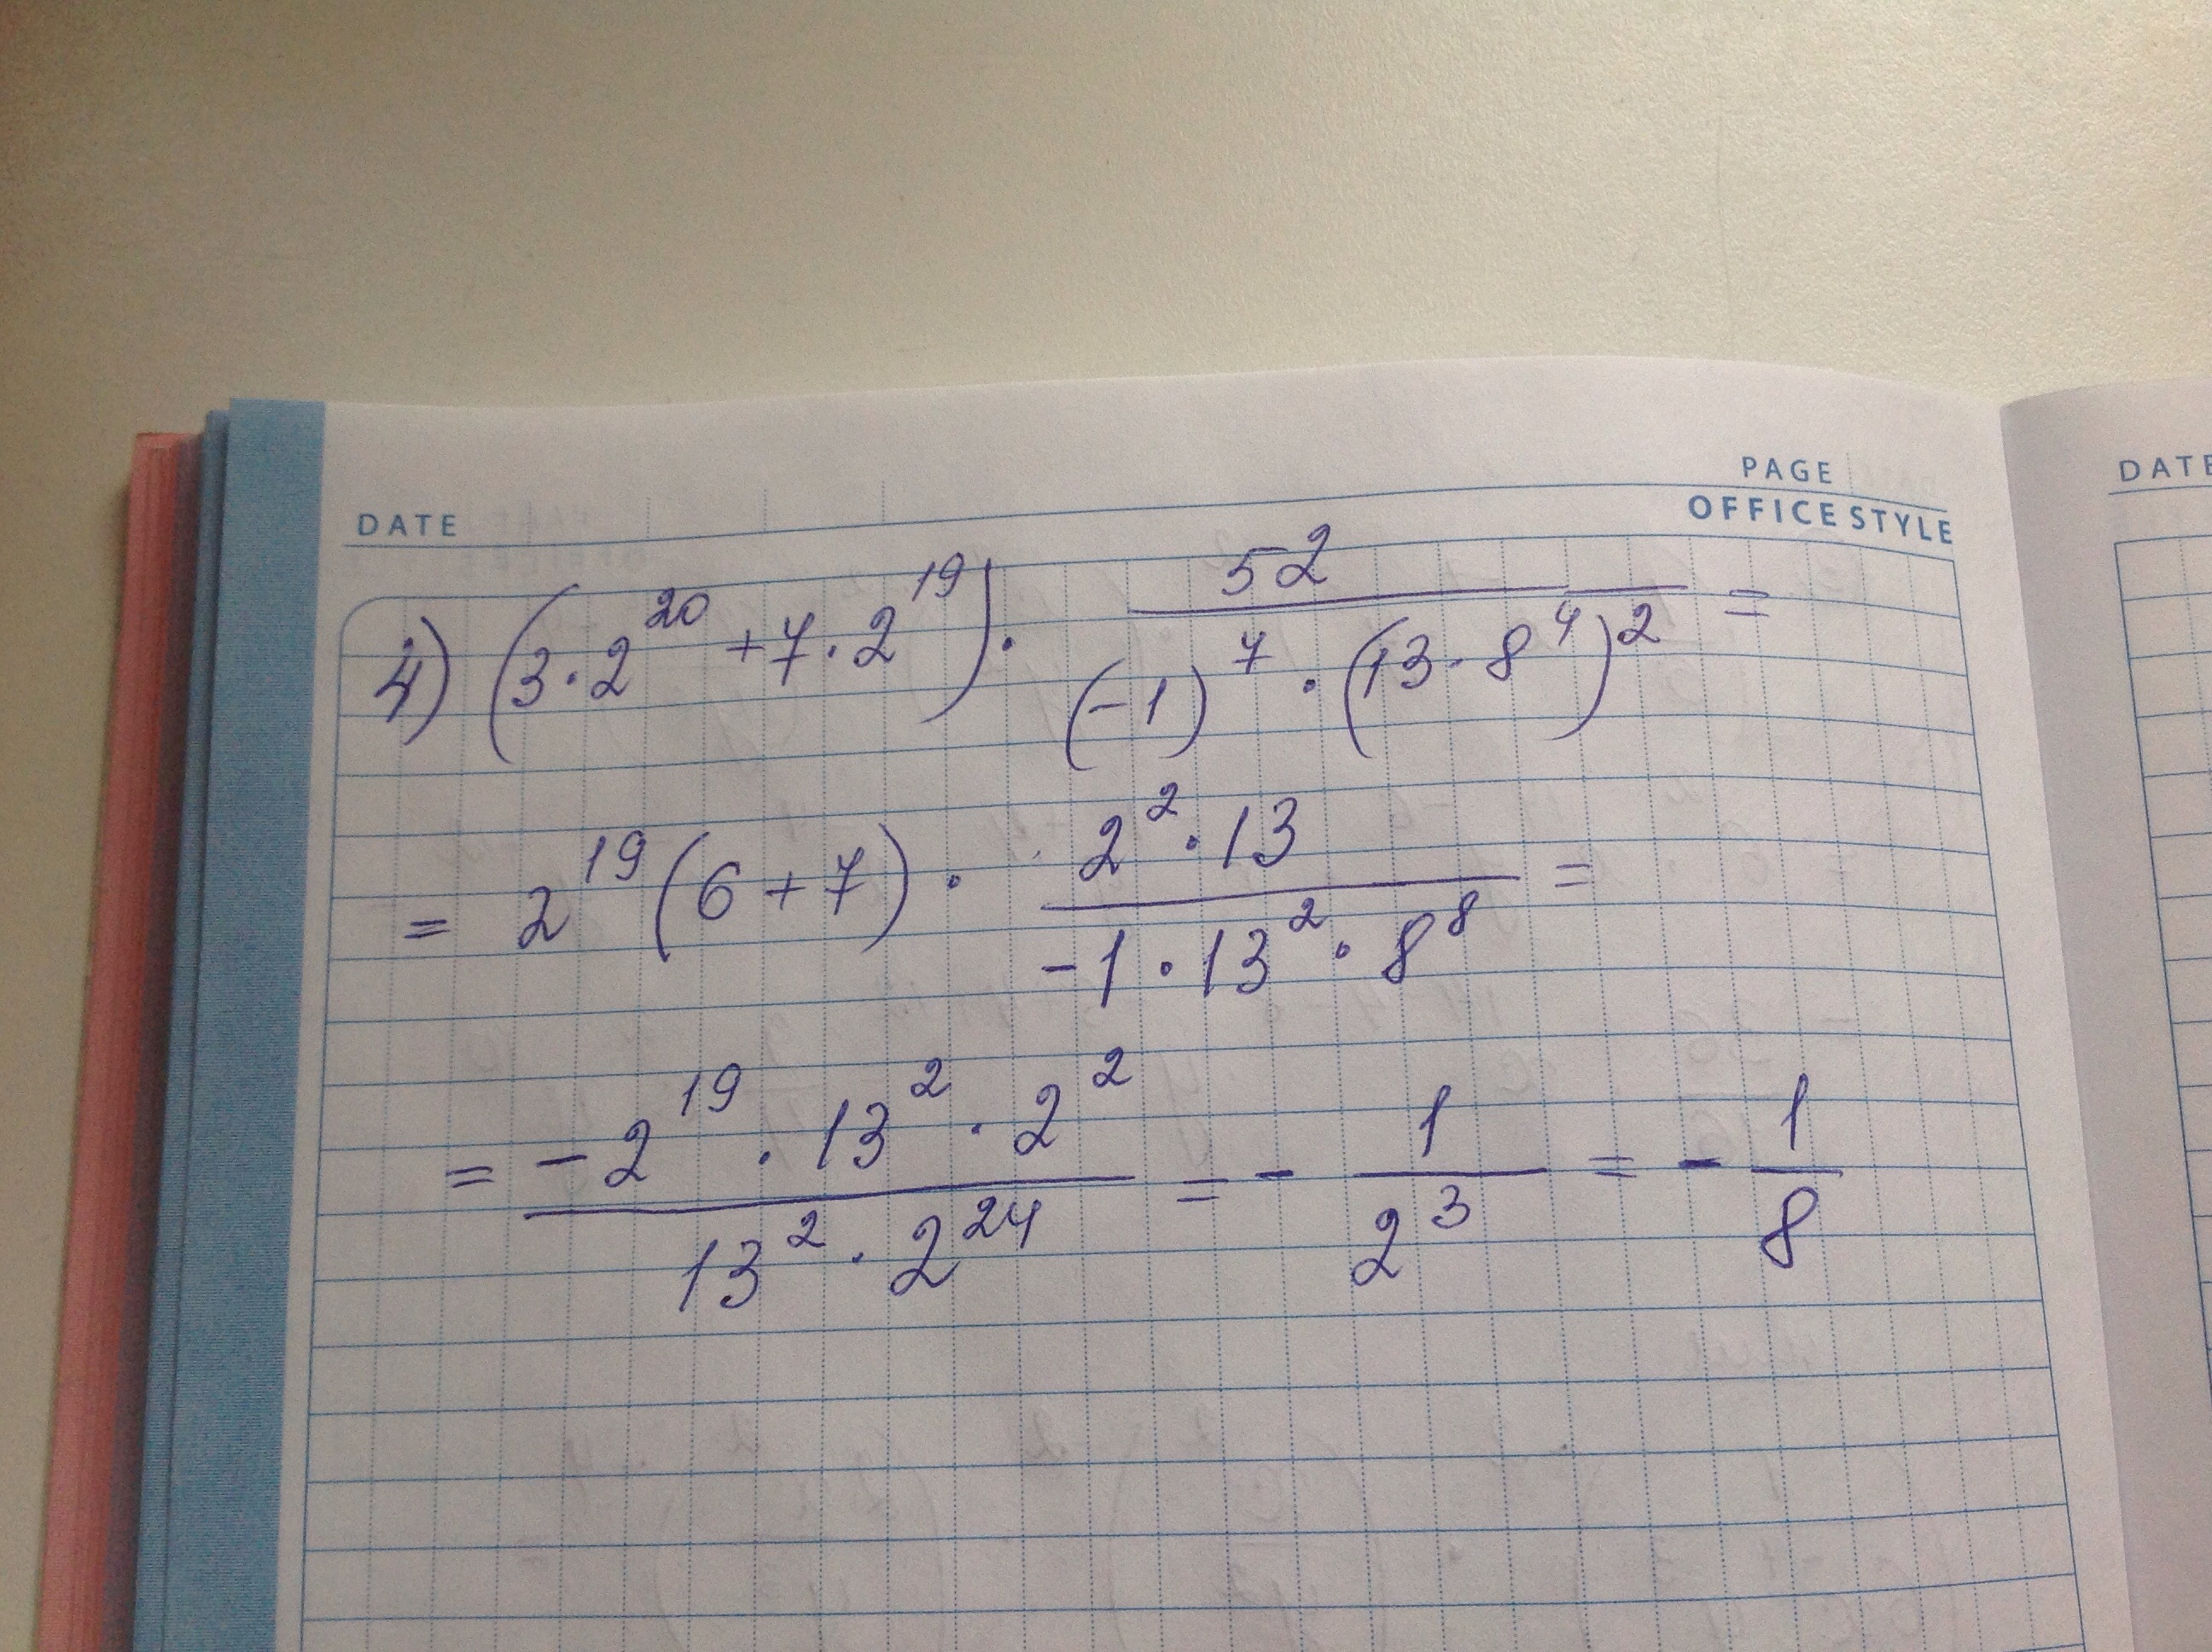 DATE
PAGE
OFFICE STYLE
DATE
4) (3·2^20 + 7·2^19) · 52 / ((-1)^7 · (13·8^4)^2) =
= 2^19 (6+7) · (2^2 · 13) / (-1 · 13^2 · 8^8) =
= (-2^19 · 13^2 · 2^2) / (13^2 · 2^24) = - 1/2^3 = - 1/8